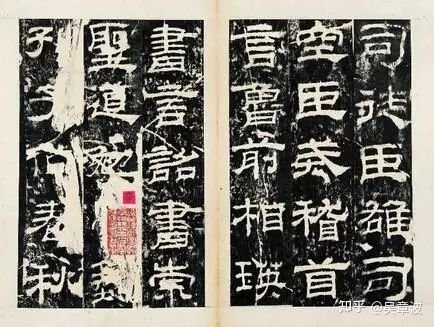 司徒臣雄司
空臣戒稽首
言魯前相瑛
書言詔書崇
聖道勉藝
孔子作春秋
知乎 @吴章波